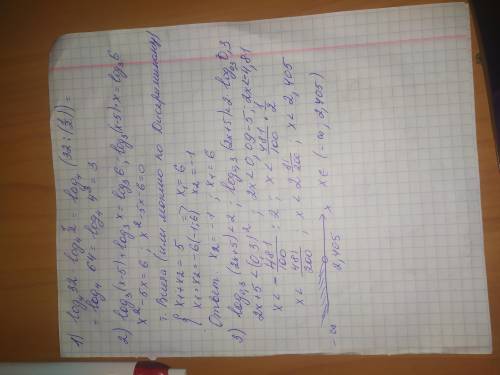 1) log₄ 32 - log₄ 1/2 = log₄ (32 : (1/2)) =
= log₄ 64 = log₄ 4³ = 3
2) log₃ (x-5) + log₃ x = log₃ 6 ; log₃ (x-5)·x = log₃ 6
x² - 5x = 6 ; x² - 5x - 6 = 0
т. Виета (или можно по Дискриминанту)
{ x₁ + x₂ = 5
{ x₁ · x₂ = -6 (-1; 6) => x₁ = 6 x₂ = -1
Ответ x₂ = -1 ; x₁ = 6
3) log₀,₃ (2x+5) < 2 ; log₀,₃ (2x+5) < 2 · log₀,₃ 0,3
2x+5 < (0,3)² ; 2x < 0,09 - 5 ; 2x < 4,81
x < - 481/100 : 2 ; x < 481/100 · 1/2
x < 481/200 ; x < 2 81/200 , x < 2,405
x x ∈ (-∞; 2,405)
-∞ 2,405